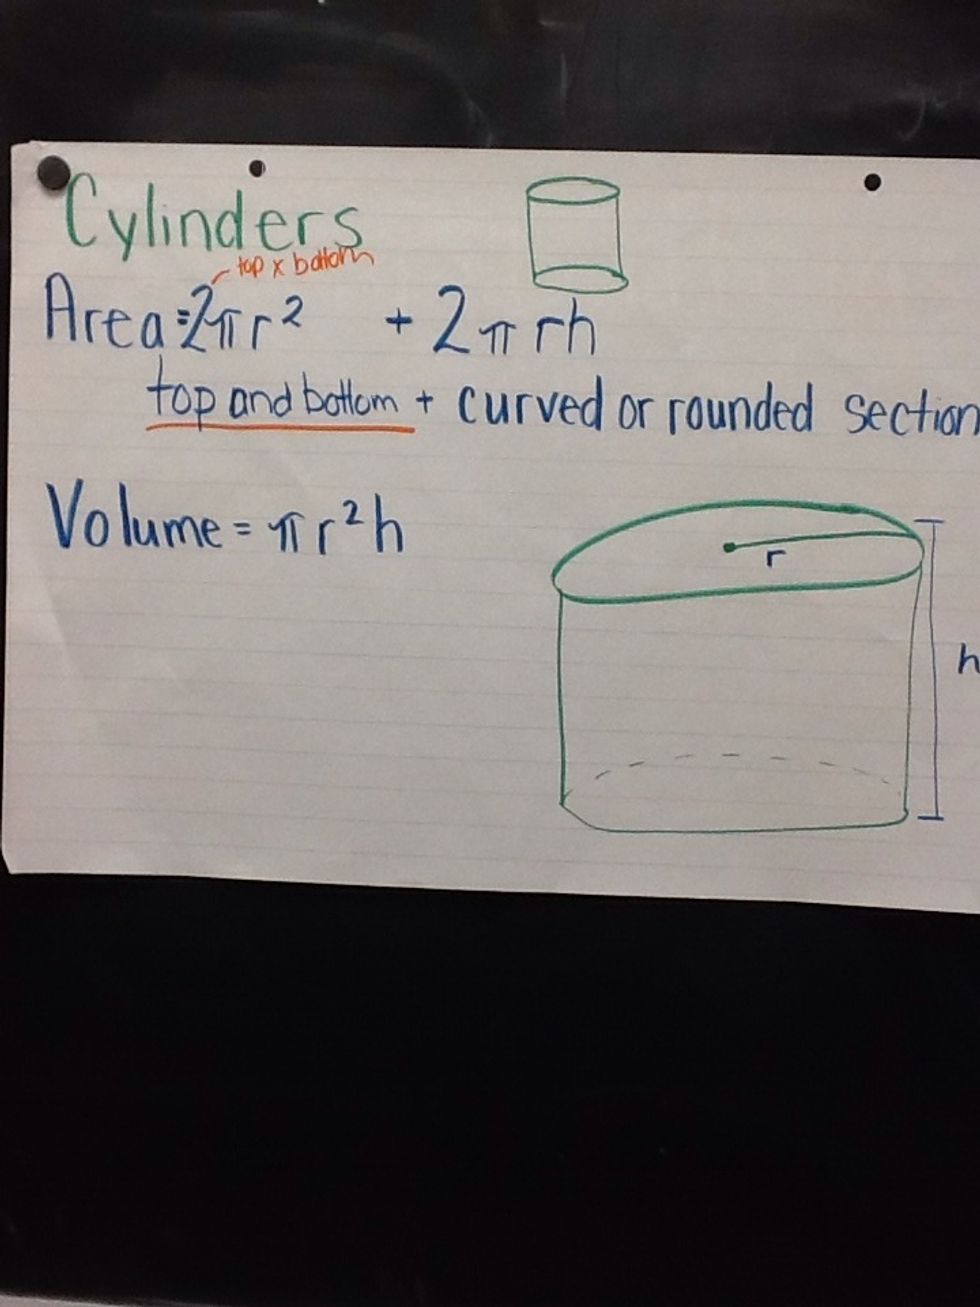 Cylinders
top x bottom
Area = 2πr² + 2πrh
top and bottom + curved or rounded section
Volume = πr²h
r
h